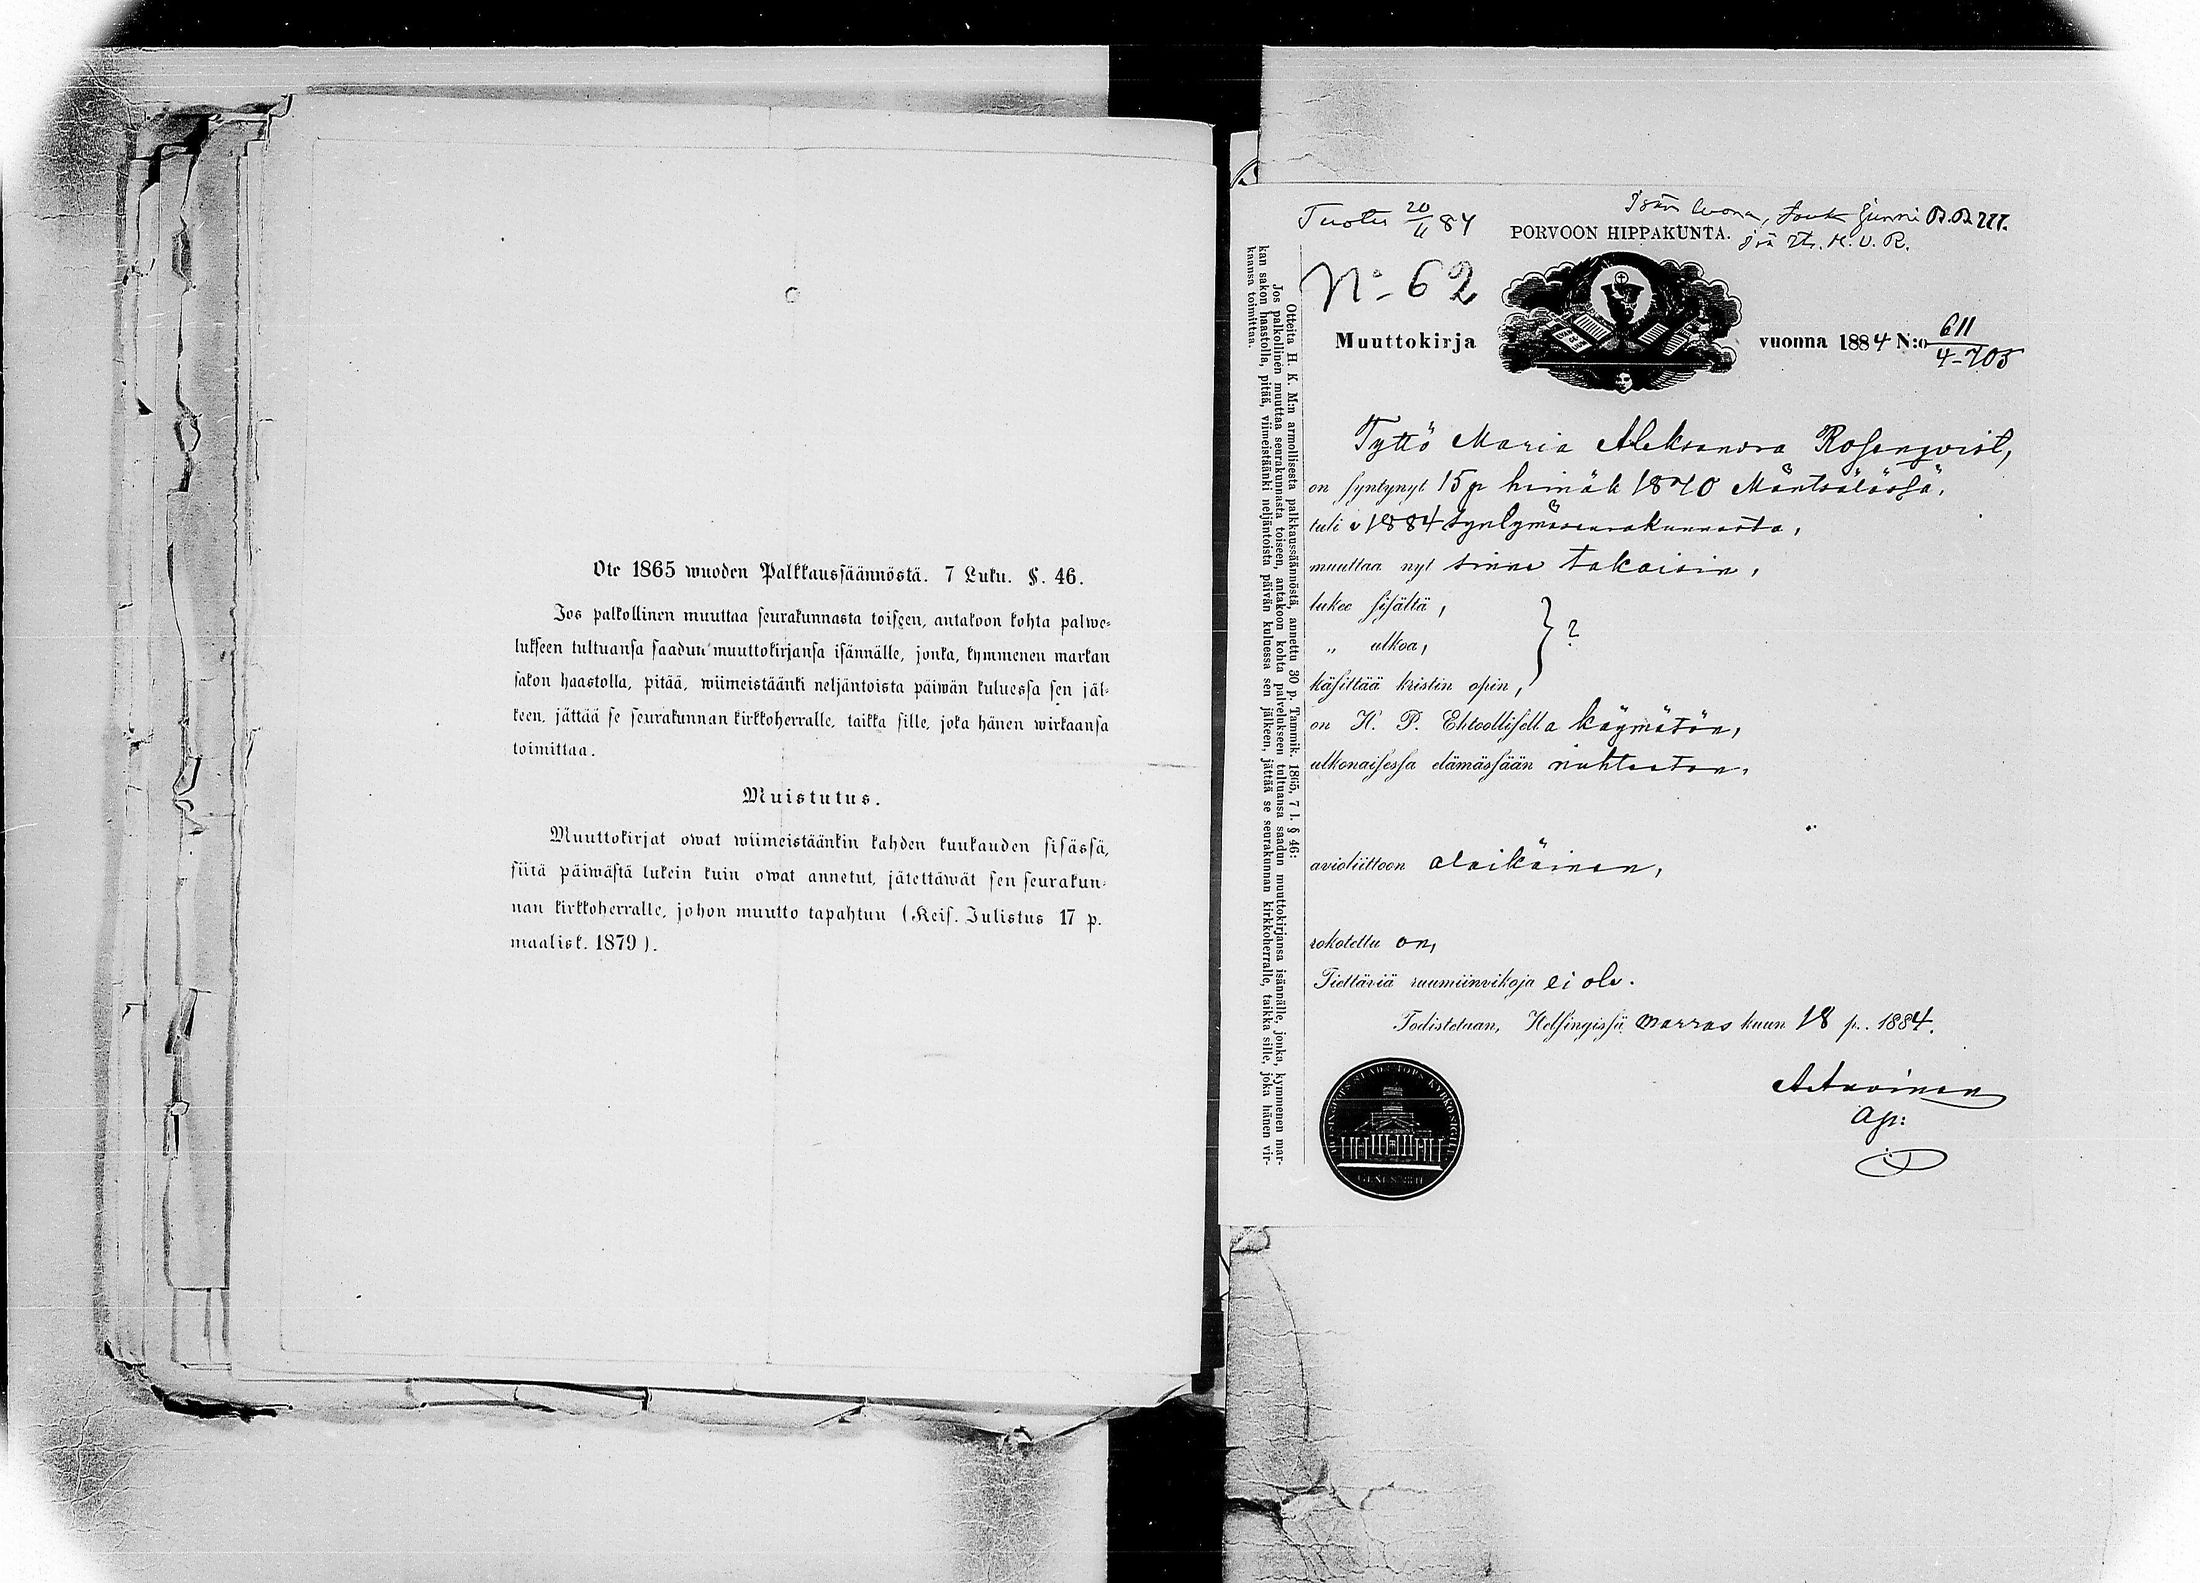 Ote 1865 wuoden Palkkaussäännöstä. 7 Luku. §. 46.
Jos palkollinen muuttaa seurakunnasta toiseen, antakoon kohta palwe-
lukseen tultuansa saadun muuttokirjansa isännälle, jonka, kymmenen markan
sakon haastolla, pitää, wiimeistäänki neljäntoista päiwän kuluessa sen jäl-
keen, jättää se seurakunnan kirkkoherralle, taikka sille, joka hänen wirkaansa
toimittaa.
Muistutus.
Muuttokirjat owat wiimeistäänkin kahden kuukauden sisässä,
siitä päiwästä lukein kuin owat annetut, jätettäwät sen seurakun-
nan kirkkoherralle, johon muutto tapahtuu (Keis. Julistus 17 p.
maalisk. 1879).
Otteita H. K. M:n armollisesta palkkaussäännöstä, annettu 30 p. Tammik. 1865, 7 l. § 46:
Jos palkollinen muuttaa seurakunnasta toiseen, antakoon kohta palvelukseen tultuansa saadun muuttokirjansa isännälle, jonka, kymmenen mar-
kan sakon haastolla, pitää, viimeistäänki neljäntoista päivän kuluessa sen jälkeen, jättää se seurakunnan kirkkoherralle, taikka sille, joka hänen vir-
kaansa toimittaa.
Tuotu 20/11 84
Isän luona,
PORVOON HIPPAKUNTA.
No 62
Muuttokirja vuonna 1884 N:o 611/4-705
Tyttö Maria Aleksandra Rosenqvist,
on syntynyt 15 p heinäk 1870 Mäntsälässä,
tuli v 1884 syntymäseurakunnasta,
muuttaa nyt sinne takaisin,
lukee sisältä, } ?
„ ulkoa,
käsittää kristin opin,
on H. P. Ehtoollisella käymätön,
ulkonaisessa elämässään nuhteeton,
avioliittoon alaikäinen,
rokotettu on,
Tiettäviä ruumiinvikoja ei ole.
Todistetaan, Helsingissä marras kuun 18 p. 1884.